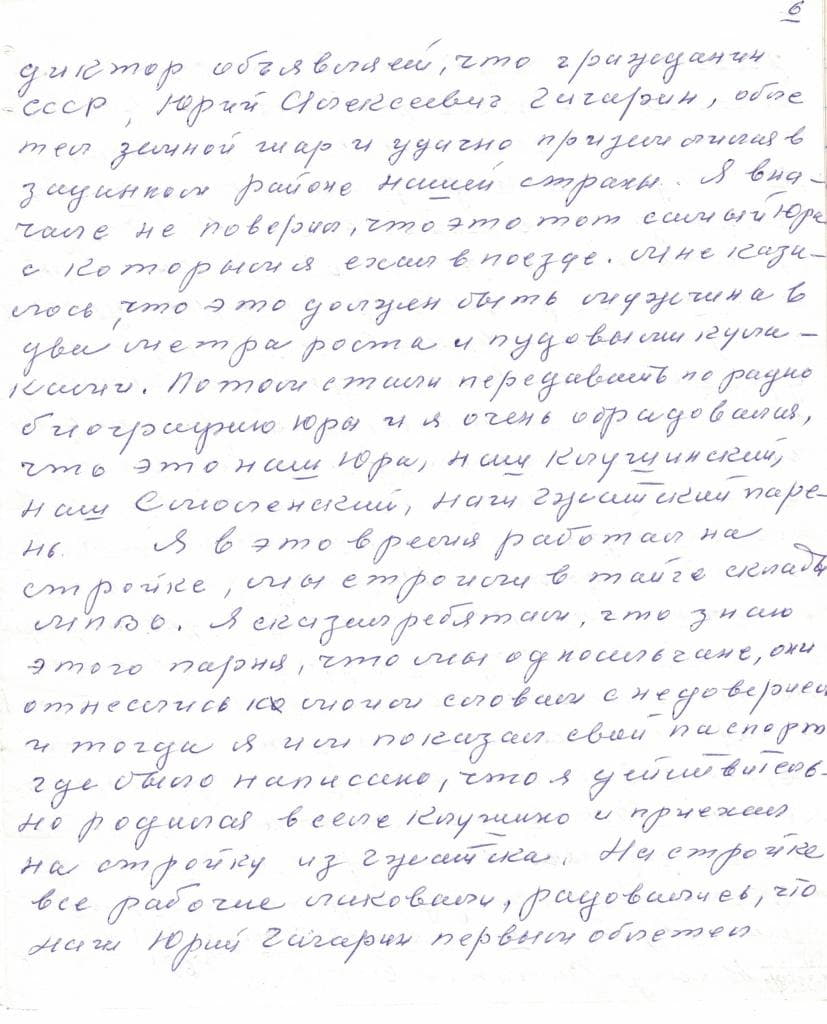 6
диктор объявляет, что гражданин
СССР, Юрий Алексеевич Гагарин, обле
тел земной шар и удачно приземлился в
заданном районе нашей страны. Я вна-
чале не поверил, что это тот самый Юра
с которым я ехал в поезде. Мне каза-
лось, что это должен быть мужчина в
два метра роста и пудовыми кула-
ками. Потом стали передавать по радио
биографию Юры и я очень обрадовался,
что это наш Юра, наш Клушинский,
наш Смоленский, наш Гжатский паре-
нь. Я в это время работал на
стройке, мы строили в тайге склады
МПВО. Я сказал ребятам, что знаю
этого парня, что мы односельчане, они
отнеслись к моим словам с недоверием
и тогда я им показал свой паспорт
где было написано, что я действитель-
но родился в селе Клушино и приехал
на стройку из Гжатска. На стройке
все рабочие ликовали, радовались, что
наш Юрий Гагарин первым облетел